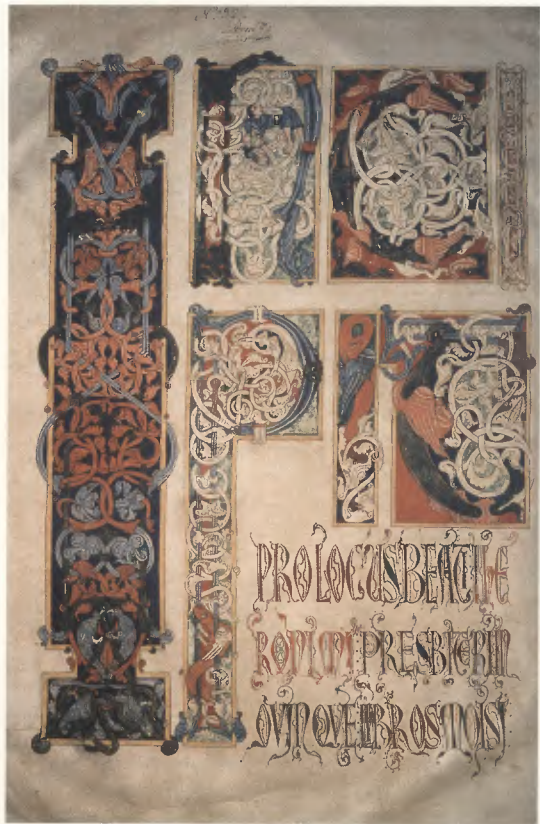 INCI
PIT
PROLOGUS BEATI IE
RONIMI PRESBITERI IN
QVINQVE LIBROS MOISI